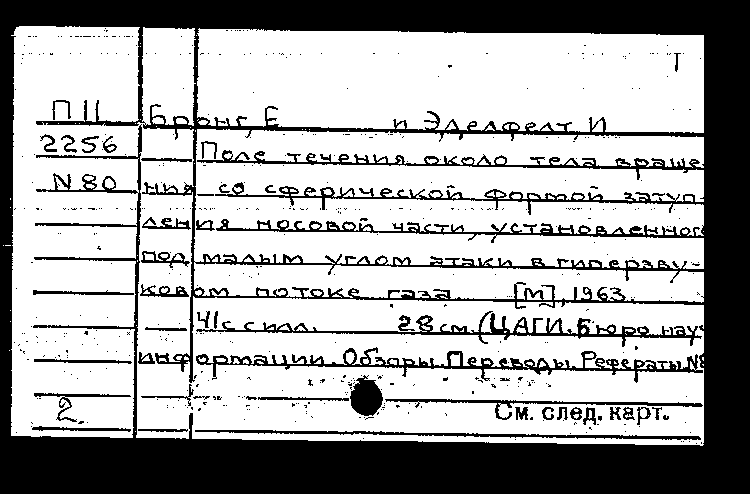 Т
П 11 Бронг, Е и Эделфелт, И
2256 Поле течения около тела враще-
N 80 ния со сферической формой затуп-
ления носовой части, установленного
под малым углом атаки в гиперзву-
ковом потоке газа [М], 1963.
41с с илл. 28 см. (ЦАГИ. Бюро науч
информации. Обзоры. Переводы. Рефераты. N8
2. См. след. карт.